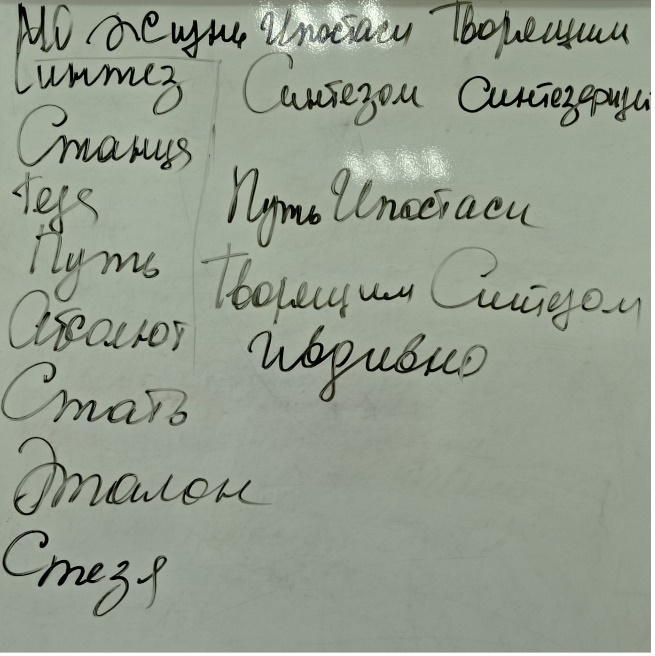 МО Жизнь Ипостаси Творящим
Синтез
Синтезом Синтезарци
Станця
Теза
Путь
Абсолют
Стать
Эталон
Стезя
Путь Ипостаси
Творящим Синтезом
Ивдивно